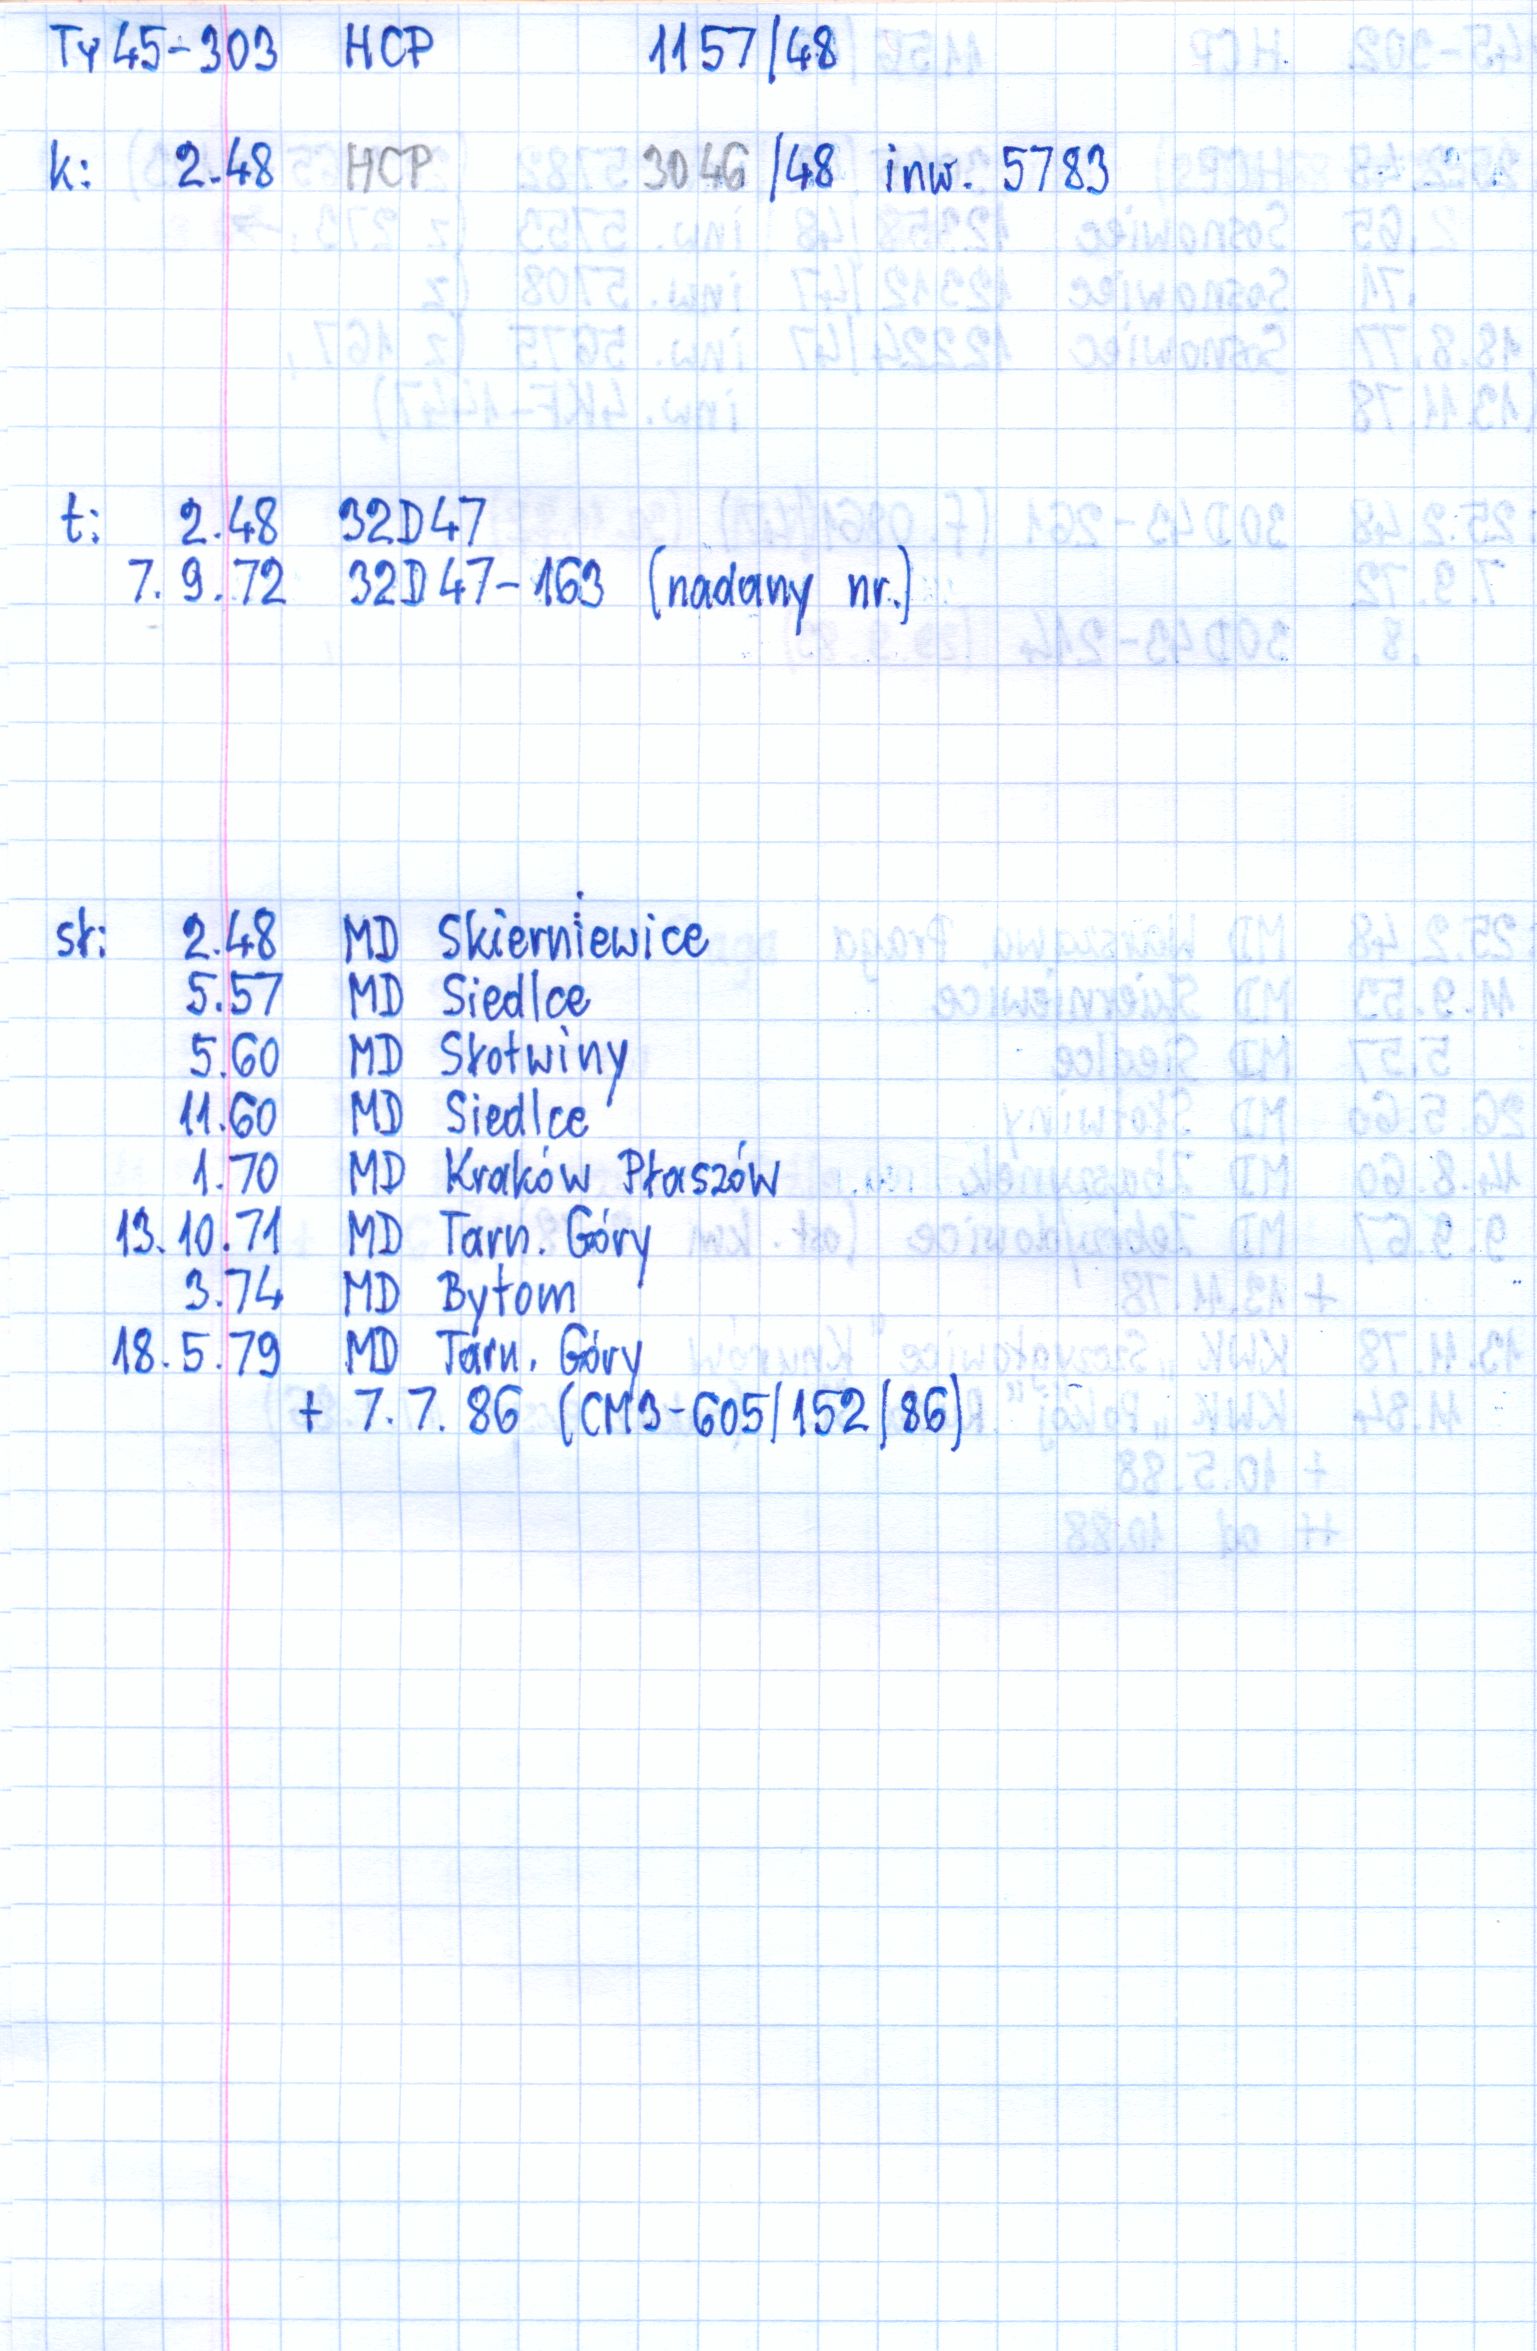 Ty45-303 HCP 1157/48
k: 2.48 HCP 3046/48 inw. 5783
t: 2.48 32D47
7.9.72 32D47-163 (nadany nr.)
st: 2.48 MD Skierniewice
5.57 MD Siedlce
5.60 MD Słotwiny
11.60 MD Siedlce
1.70 MD Kraków Płaszów
13.10.71 MD Tarn. Góry
3.74 MD Bytom
18.5.79 MD Tarn. Góry
+ 7.7.86 (CM3-605/152/86)